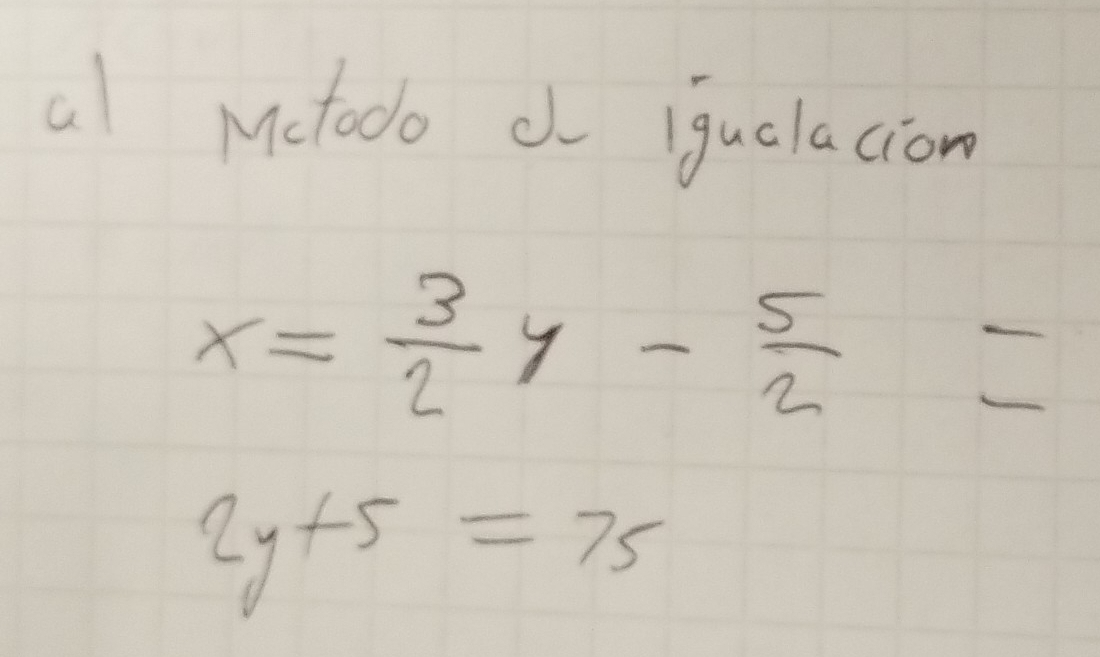 a) Metodo d igualacion
x = 3/2 y - 5/2 =
2y+5 = 75